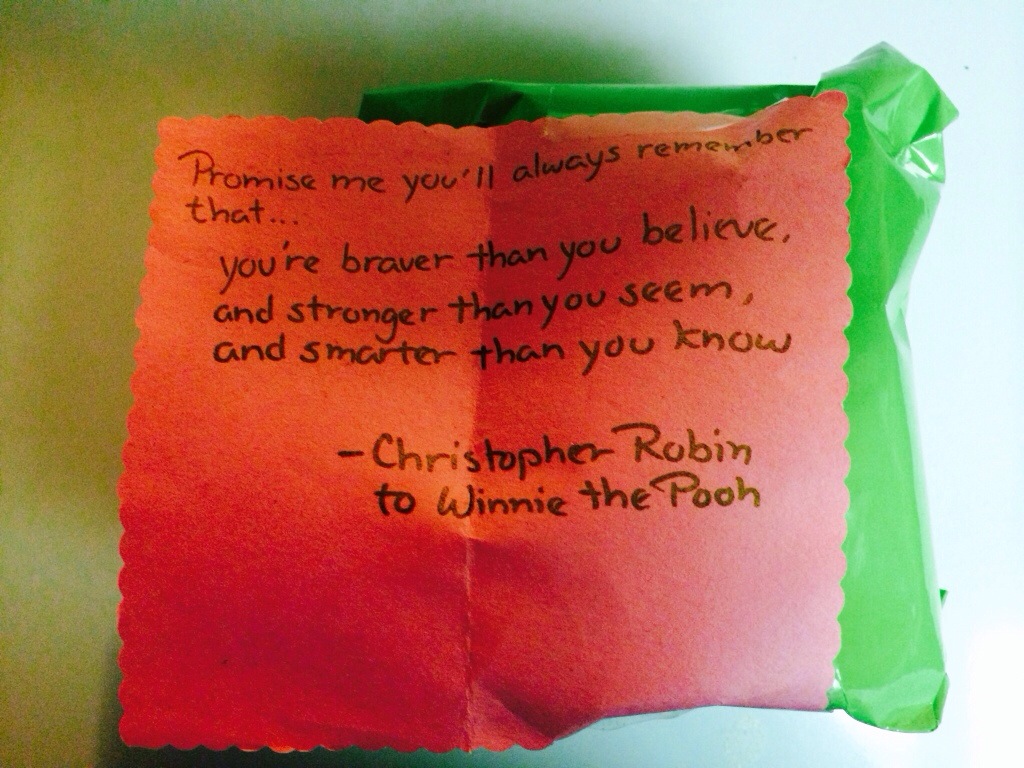 Promise me you'll always remember
that...
you're braver than you believe,
and stronger than you seem,
and smarter than you know
-Christopher Robin
to Winnie the Pooh